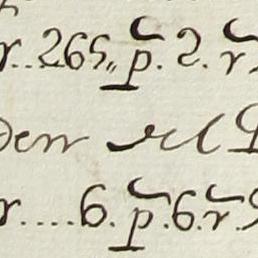 r..265,, p. 2. r
den del
r....6. p. 6. r. 9